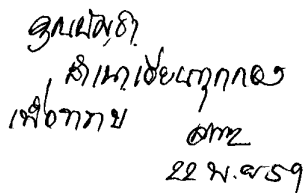 คุณบัญชา
สำเนาเรียนทุกกอง
เพื่อทราบ
22 พ.ย 59